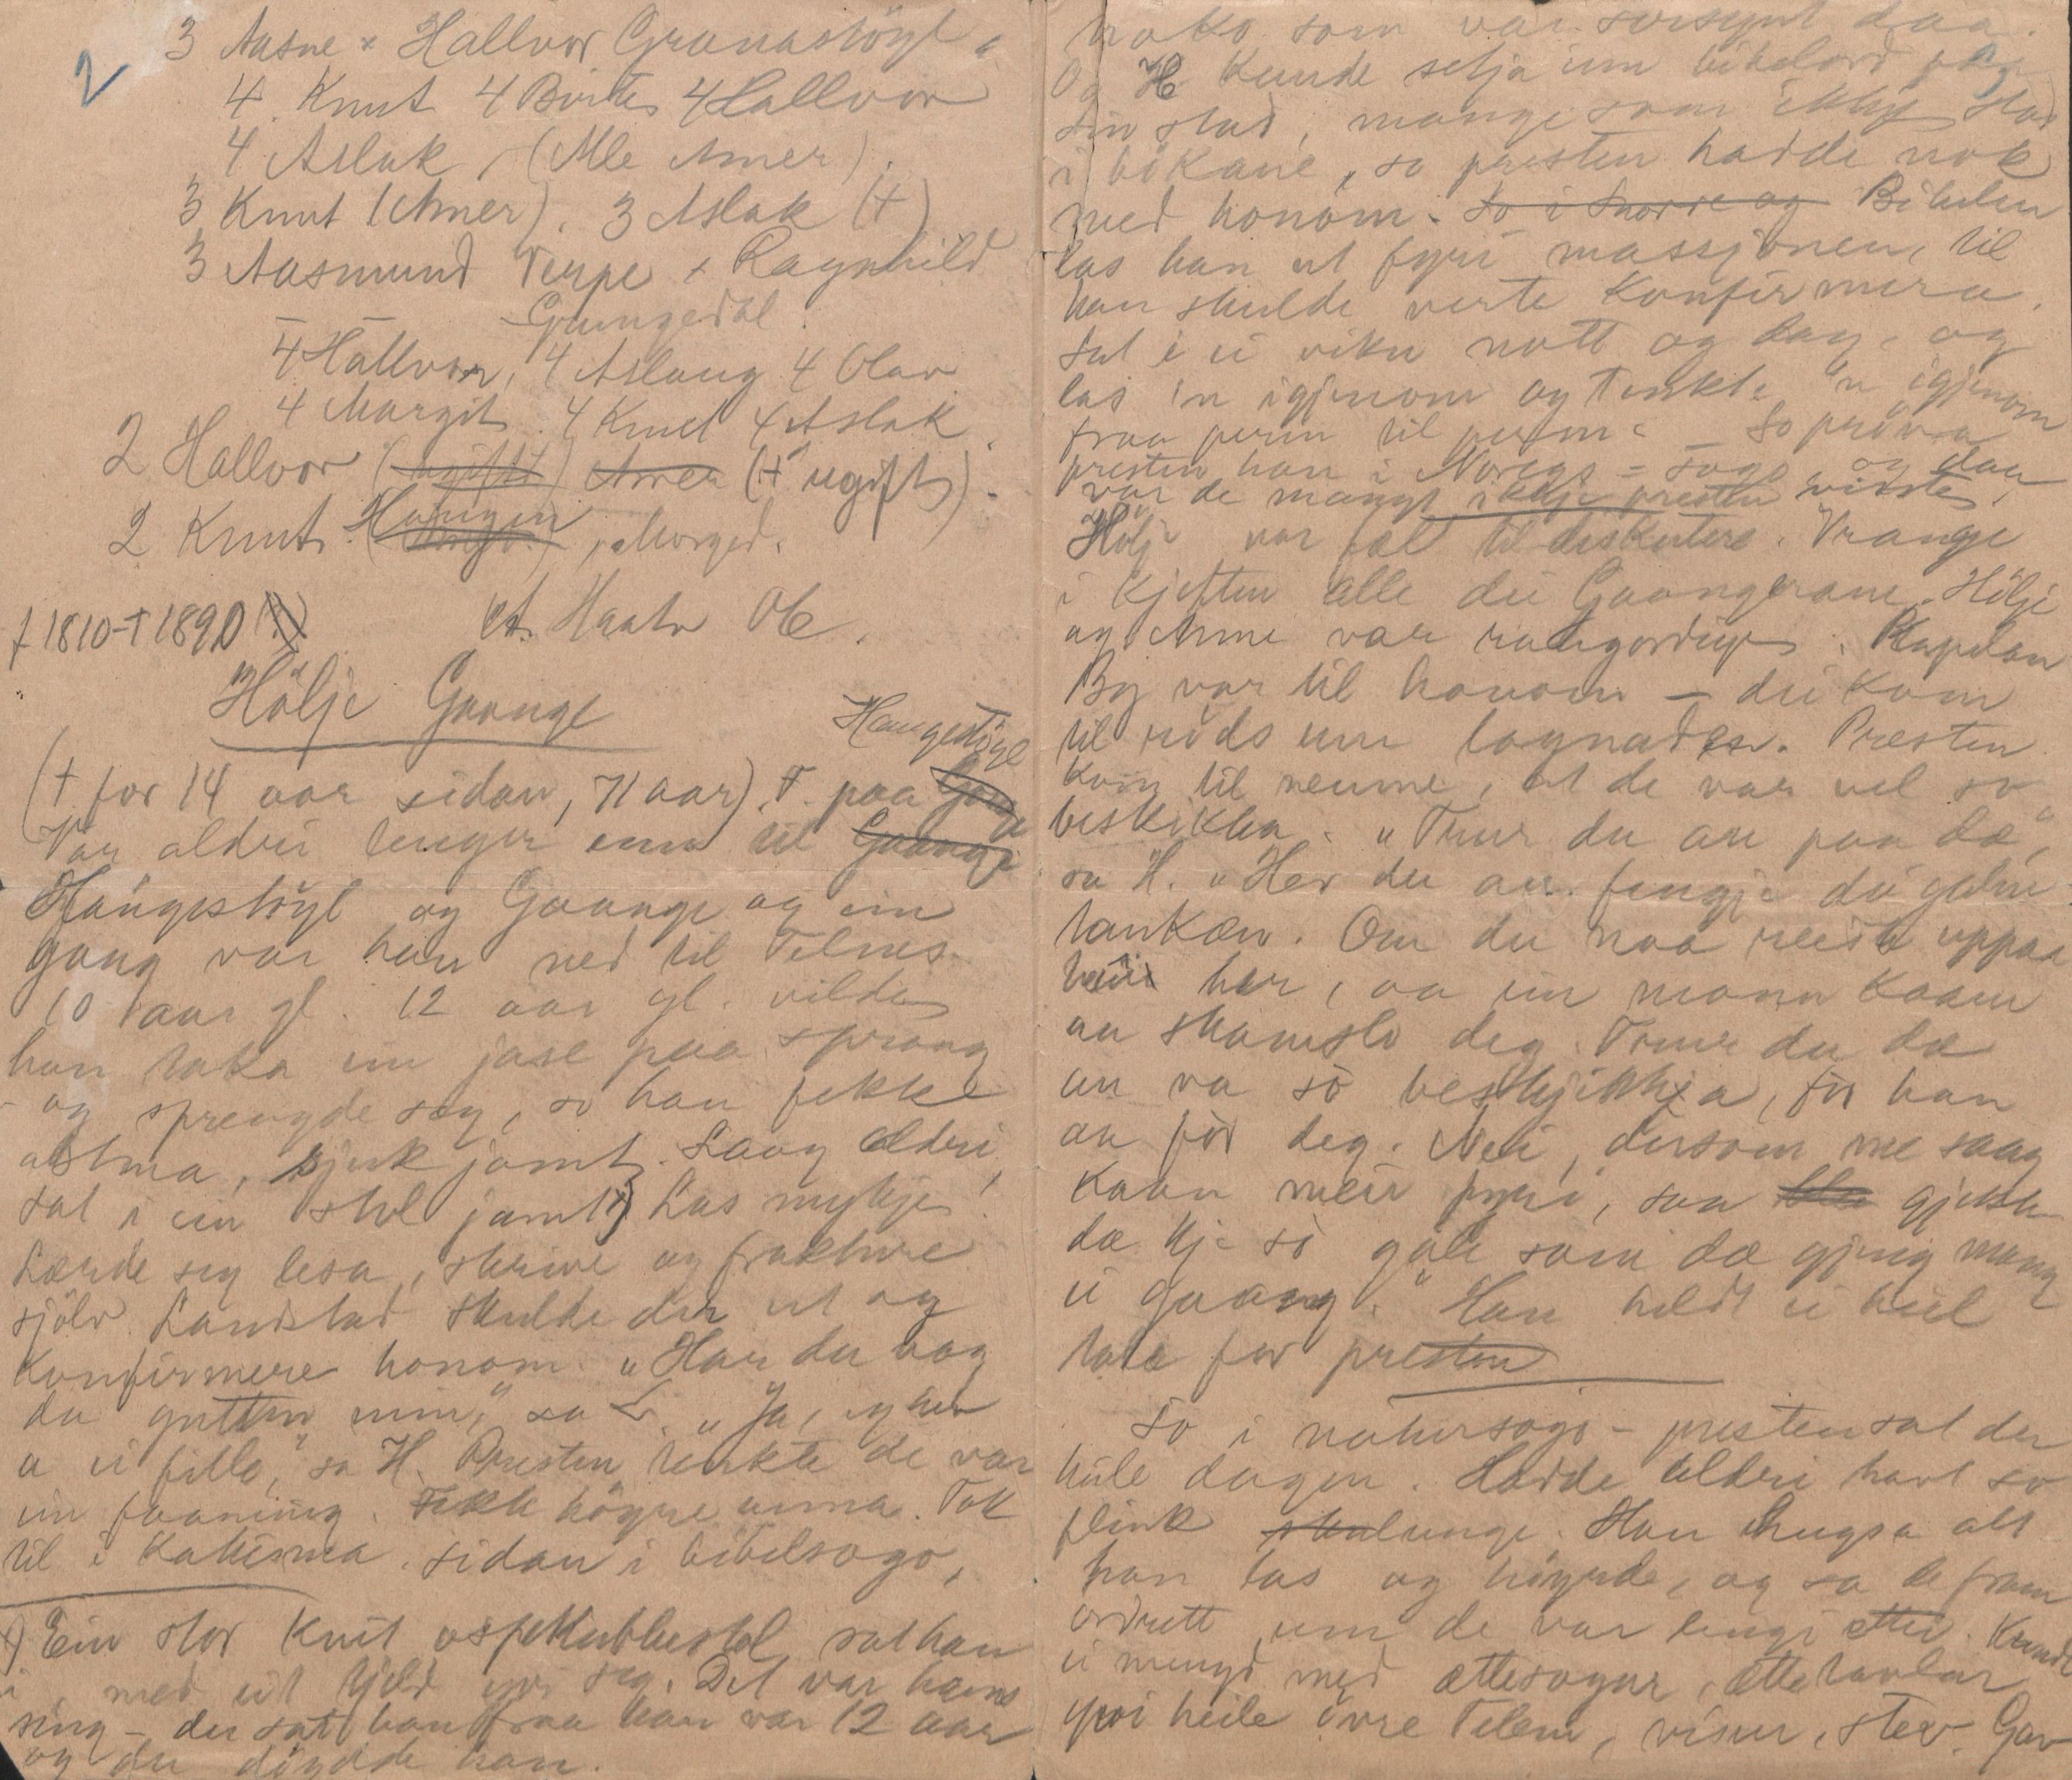 2
3 Aasne x Hallvor Grunnastöyl
4. Knut 4 Birte 4 Hallvor
4 Aslak, (Alle Amer).
3 Knut (Amer). 3 Aslak (+)
3 Aasmund Terpe x Ragnhild
Grungedal.
4 Hallvor, 4 Aslaug 4 Olav
4 Margit 4 Knut 4 Aslak.
2 Hallvor (ugift) Amer († ugift).
2 Knut Haugen, Morged.
f 1810 - † 1890 (?)
et. Haatv Ole.
Hölje Gaange
Haugestöyl
(† for 14 aar sidan, 71 aar). F. paa
Var aldri lenger enn til Gaange
Haugestöyl og Gaange og ein
gong var han ned til Telnes
10 aar gl. 12 aar gl. vilde
han taka ein jase paa sprang
og sprengde seg, so han fekk
astma, sjuk jamt. Laag aldri,
sat i ein stol jamt x) Las mykje.
Lærde seg lesa, skrive og frakture
sjölv. Landstad skulde der ut og
konfirmere honom. "Har du bog
du gutten min," sa L. "Ja, eg hev
a ei fillo," sa H. Presten tenkte de var
ein faaning. Fekk högre vinna. Tok
til i Katkisma. sidan i bibelsogo,
x) Ein stor knut ospekubbestol sat han
i, med eit tjeld yvi seg. Det var hans
seng - der sat han fraa han var 12 aar
og der döydde han.
noko som var sersynt daa.
Og H kunde setja um bibelord paa
sin stad, mange som ikkje stod
i bökane, so presten hadde nok
med honom. So i Snorre og Bibelen
las han ut fyri massjonen, til
han skulde verte konfirmera.
Sat i ei viku nott og dag, og
las 'n igjenom og tenkte 'n igjenom
fraa perm til perm. - So pröva
presten han i Noregs-sogo, og daa
var de mangt ikkje presten visste,
Hölje var fæl til diskutere. Vrange
i kjeften alle dei Gaangerane. Hölje
og Anne var rulegordige. Kapelan
By var til honom - dei kom
til röds um lagnaden. Presten
kom til nemne, at de var vel so
beskikka. "Trur du au paa dæ",
sa H. "Hev du au fengje dei galne
tankan. Om du naa reiste uppaa
heii her, aa ein mann kaam
au skamslo deg. Trur du dæ
an va so beskjikkja, for han
au for deg. Nei, dersom me saag
kaan meir fyri, saa gjekk
dæ kje so gale som dæ gjeng mang
ei gaang." Han heldt ei heil
tale for presten
So i natursogo - presten sat der
heile dagen. Hadde aldri havt so
flink unge. Han hugsa alt
han las og höyrde, og sa de fram
ordrett um de var lengi etter. Kunde
ei mengd med ættesogur, ættetavlar
yvi heile övre Telem, visur, stev. Gav